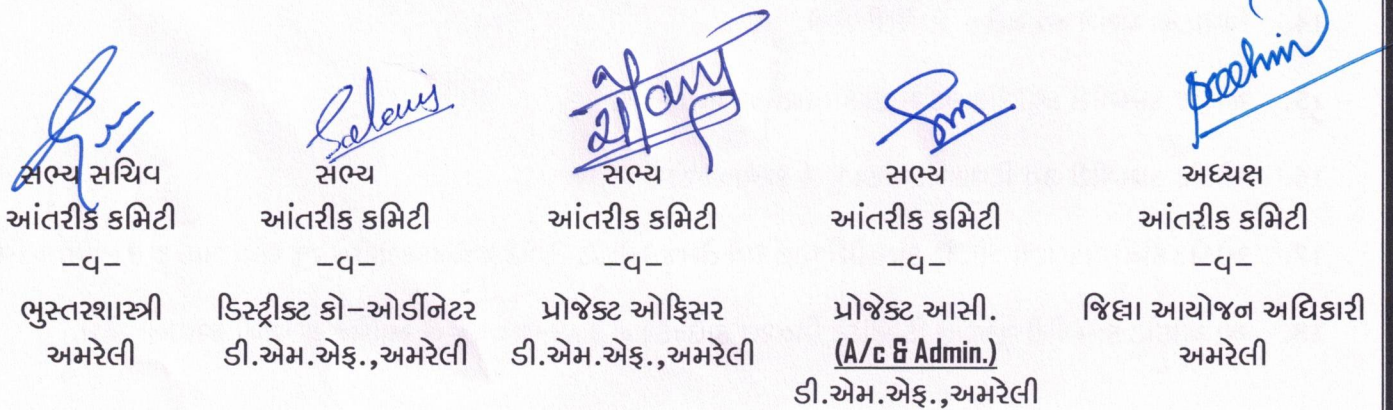 સભ્ય સચિવ
આંતરીક કમિટી
–વ–
ભુસ્તરશાસ્ત્રી
અમરેલી
સભ્ય
આંતરીક કમિટી
–વ–
ડિસ્ટ્રીક્ટ કો–ઓર્ડીનેટર
ડી.એમ.એફ.,અમરેલી
સભ્ય
આંતરીક કમિટી
–વ–
પ્રોજેક્ટ ઓફિસર
ડી.એમ.એફ.,અમરેલી
સભ્ય
આંતરીક કમિટી
–વ–
પ્રોજેક્ટ આસી.
(A/c & Admin.)
ડી.એમ.એફ.,અમરેલી
અધ્યક્ષ
આંતરીક કમિટી
–વ–
જિલ્લા આયોજન અધિકારી
અમરેલી